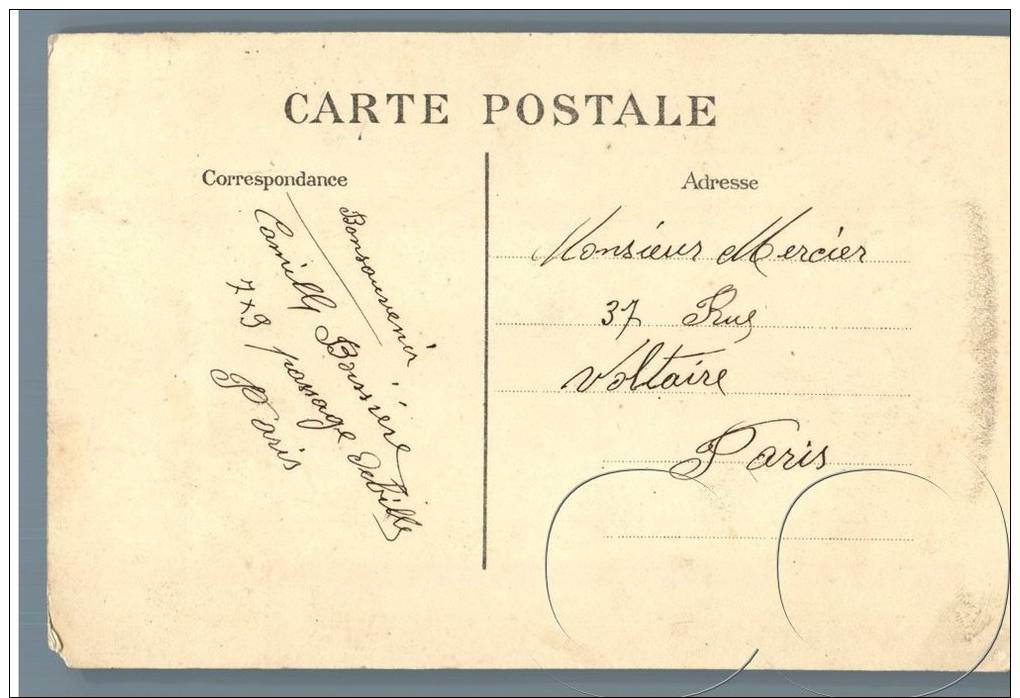 CARTE POSTALE
Correspondance
Bonsouvenir
Camille Boissière
7 x 9 passage
Paris
Adresse
Monsieur Mercier
37 Rue
Voltaire
Paris